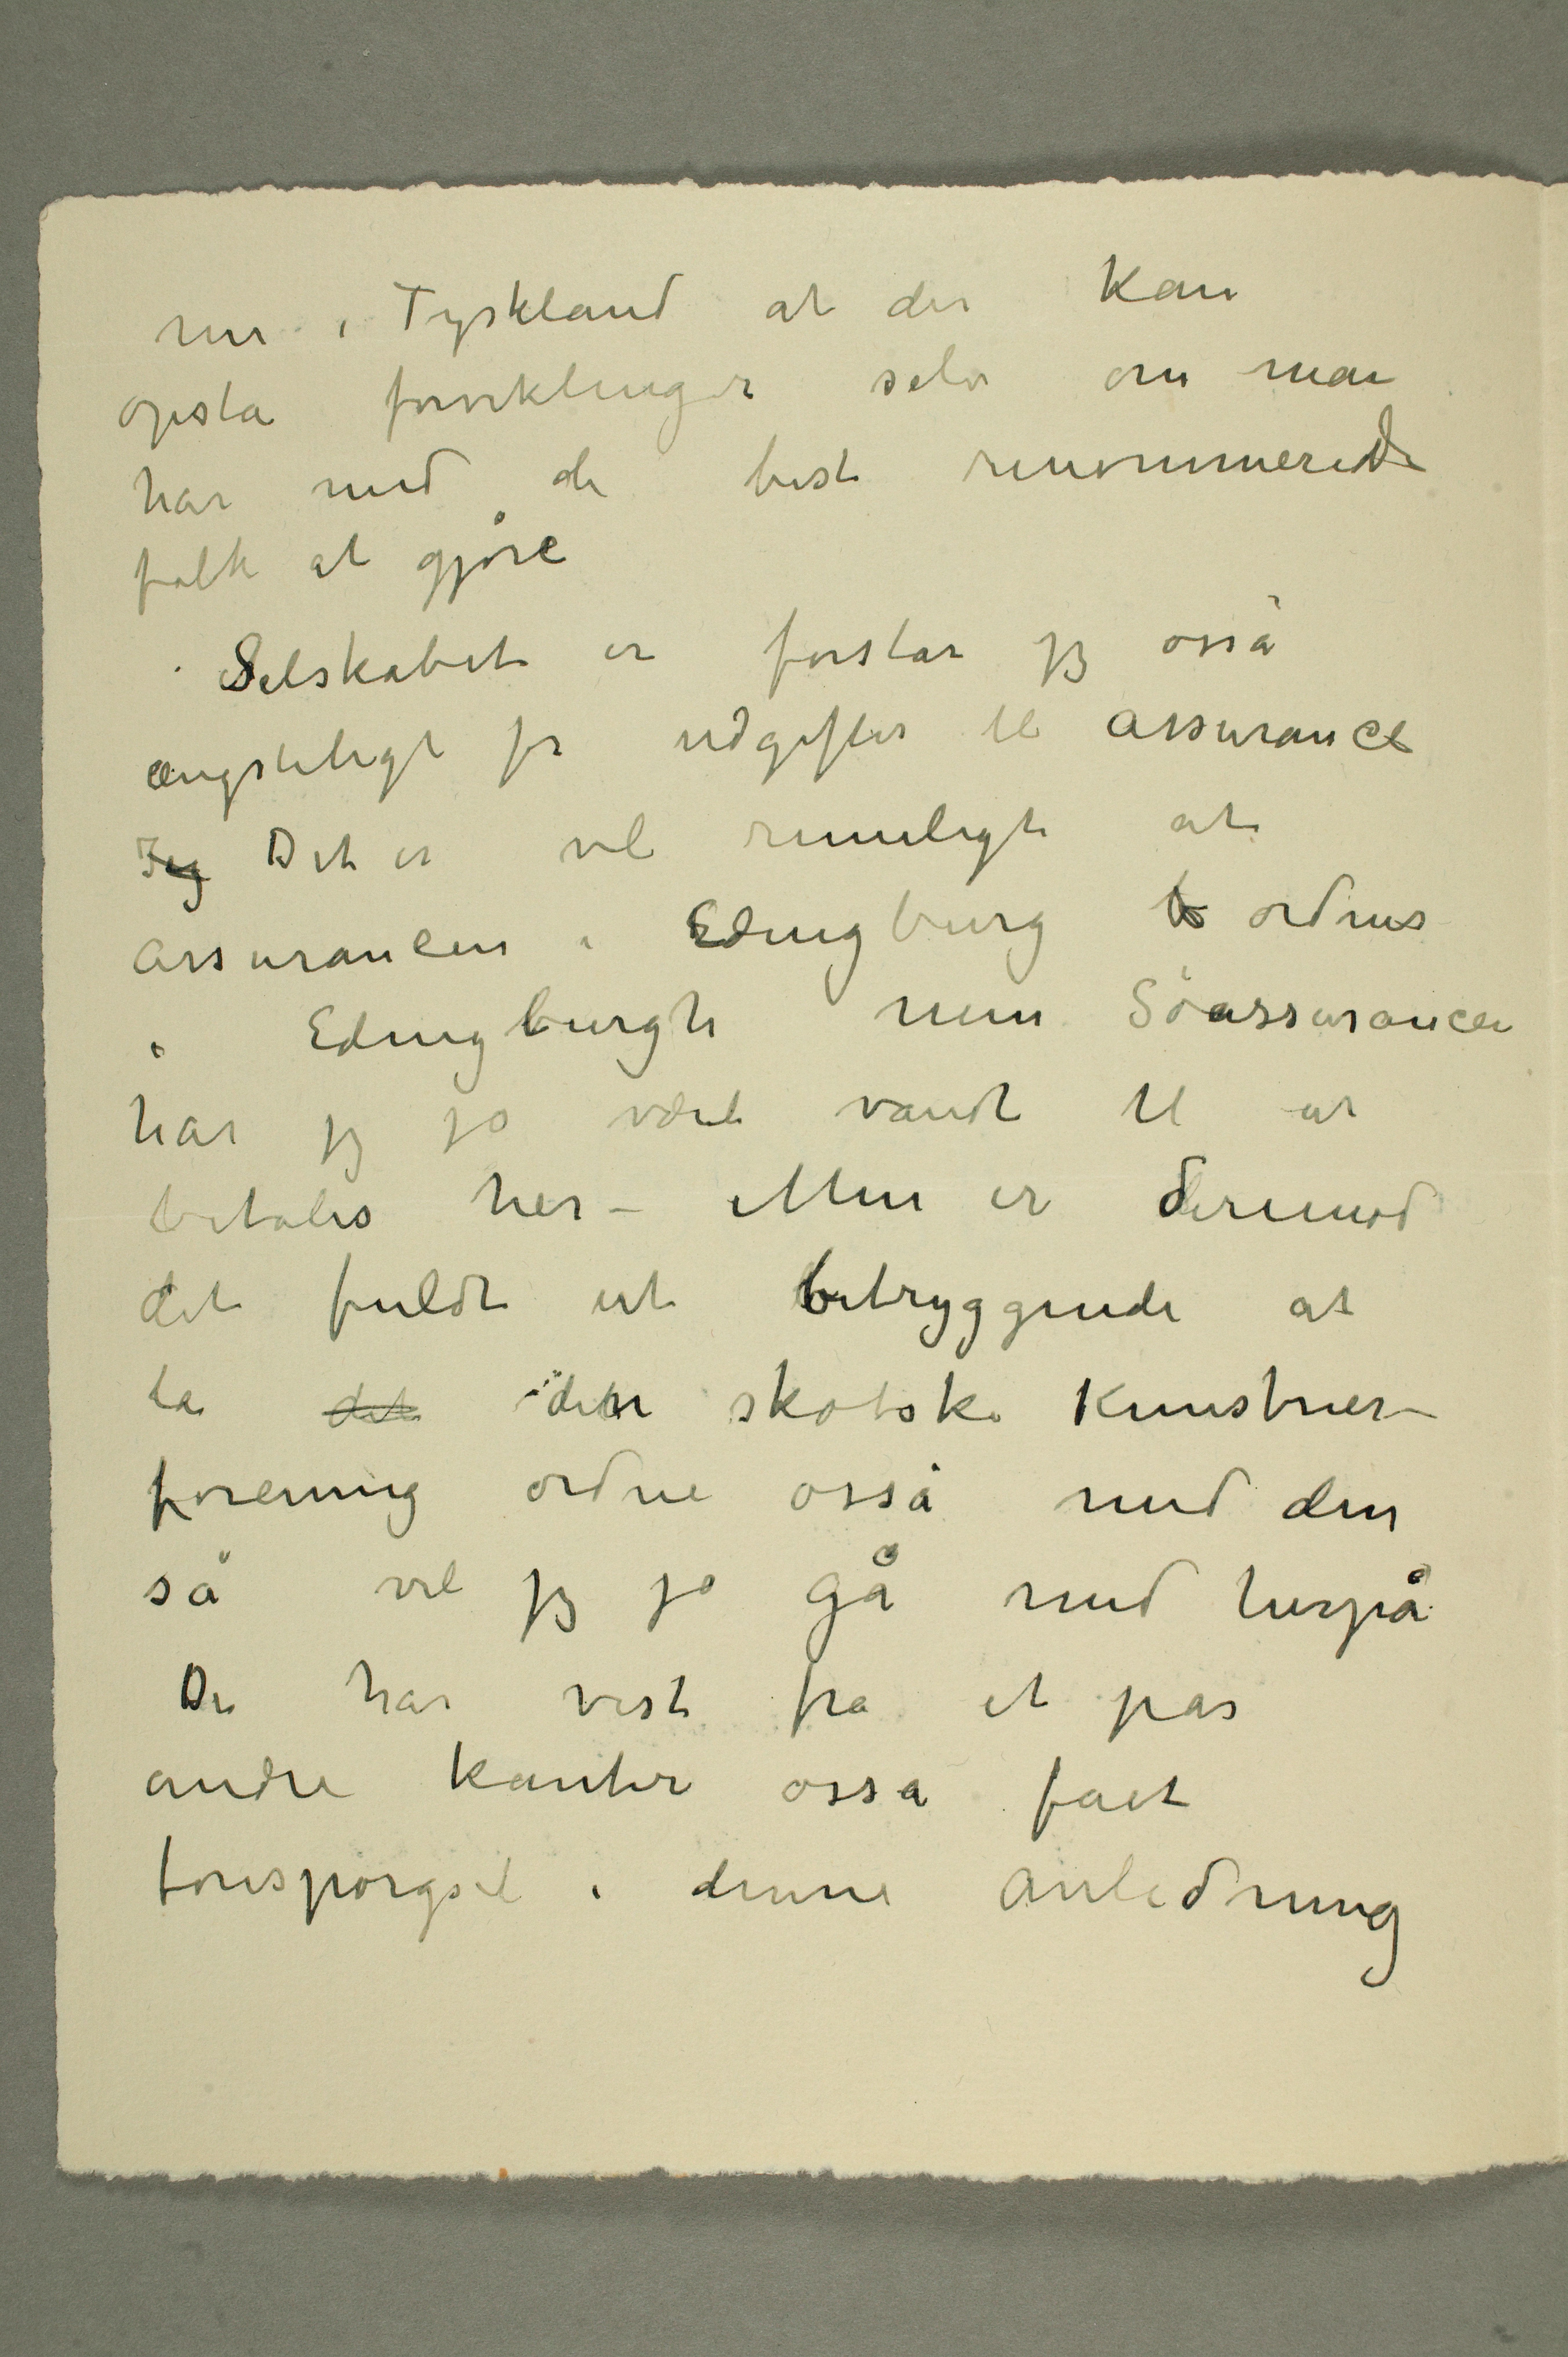 mer i Tyskland at der kan
opstå forviklinger selv om man
har med de best renommerede
folk at gjøre
Selskabet er forstår jeg osså
ængsteligt for udgifter til assurance
Jeg Det er vel rimeligt at
assurancen i Edingburg b ordnes
i Edingburgh men Søassurancen
har jeg jo været vandt til at
betales her – Men er derimod
det fuldt ut betryggende at
la det den skotske Kunstner-
forening ordne osså med den
så vil jeg jo gå med herpå
De har vist fra et par
andre kanter osså fået
forespørgsel i denne anledning